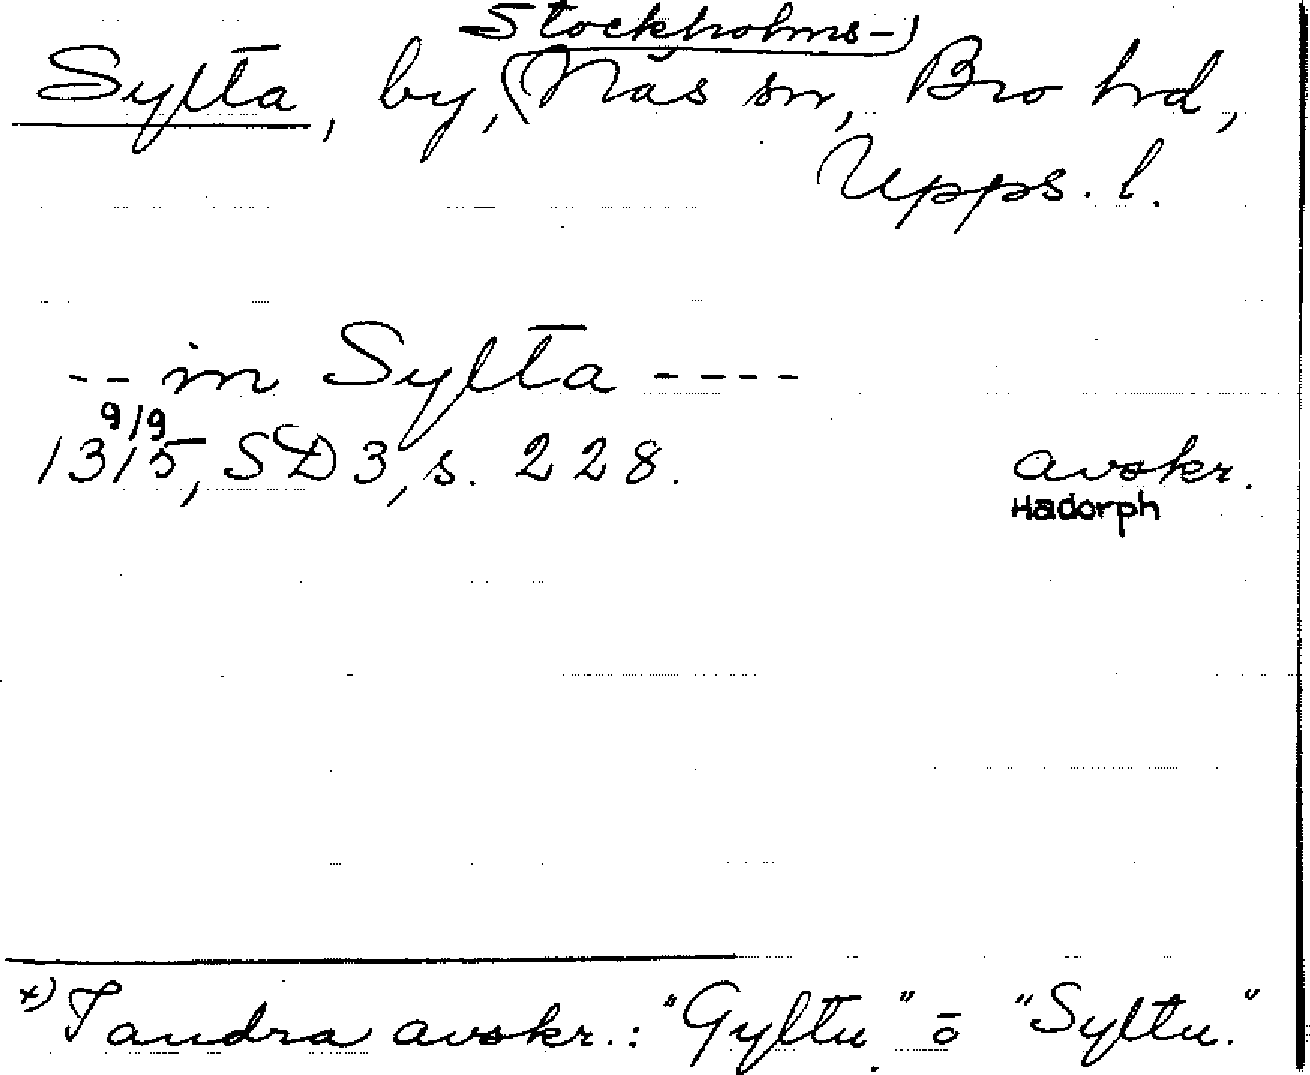 Stockholms-)
Sylta, by, (Näs sn, Bro hd,
Upps. l.
-- in Sylta ----
9/9
1315, SD 3, s. 228. avskr.
Hadorph
x) I andra avskr.: "Gyltu" o "Syltu."